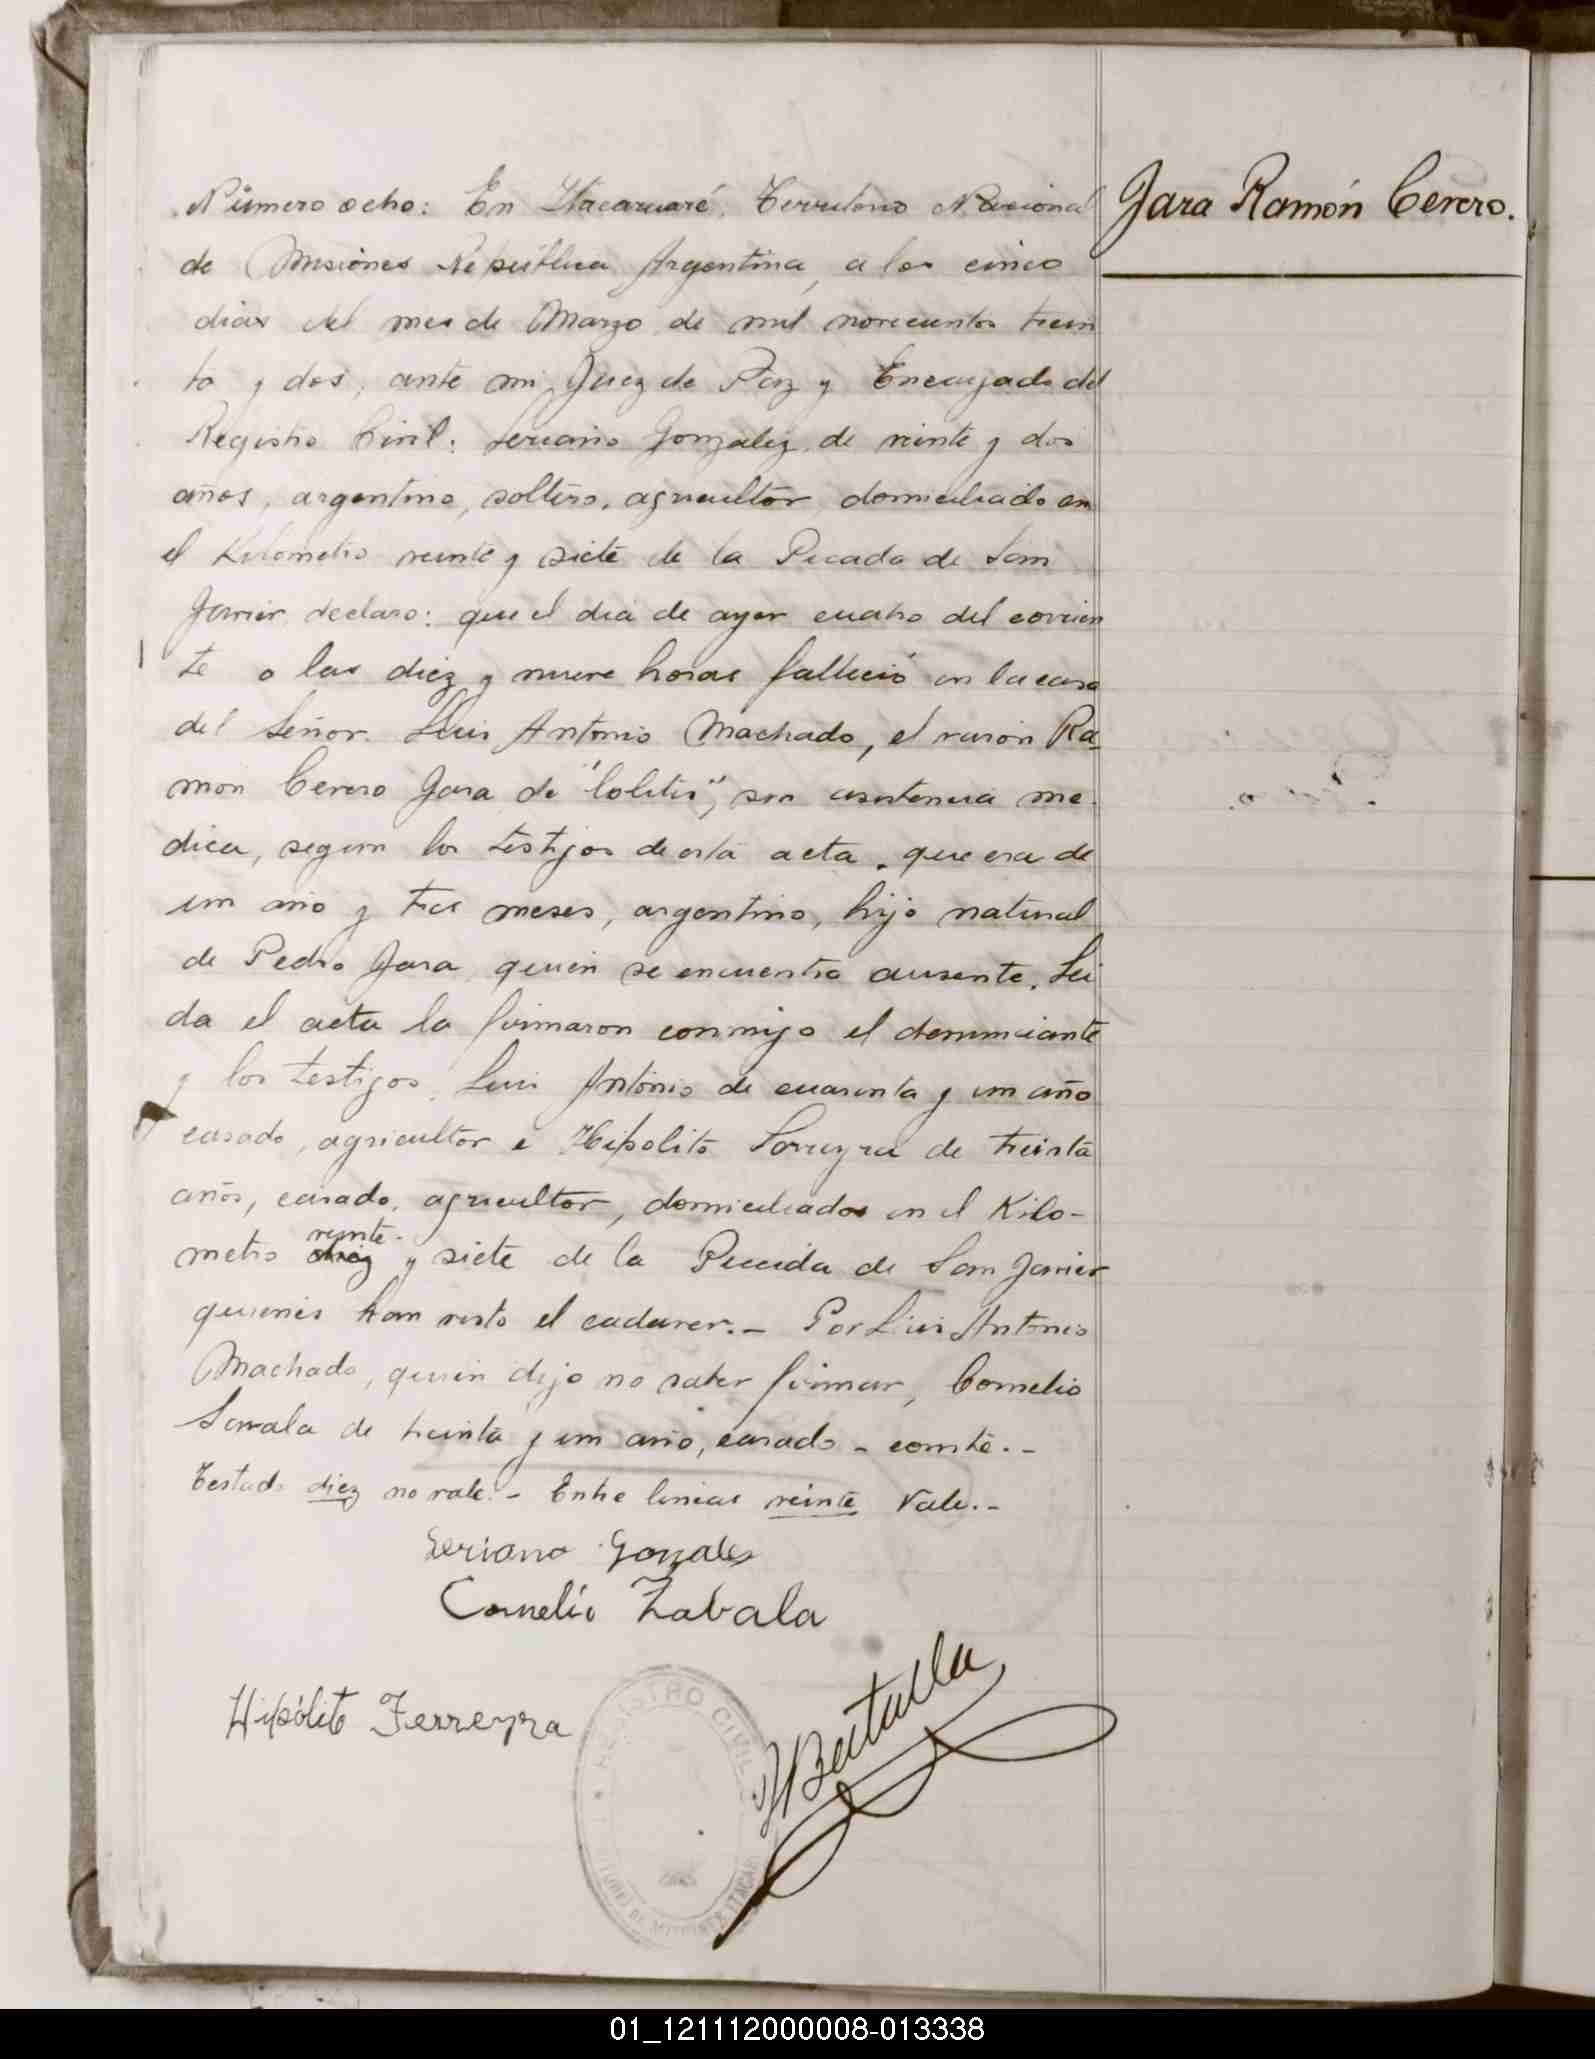 Jara Ramón Cerero.
Número ocho: En Itacaruaré, Territorio Nacional
de Misiones República Argentina, a los cinco
dias del mes de Marzo de mil novecientos trein
ta y dos, ante mi, Juez de Paz y Encargado del
Registro Civil: Seriano Gonzalez, de veinte y dos
años, argentino, soltero, agricultor, domiciliado en
el Kilometro veinte y siete de la Picada de San
Javier, declaro: que el dia de ayer cuatro del corrien
te a las diez y nueve horas falleció en la casa
del Señor Luis Antonio Machado, el varón Ra
mon Cerero Jara de "colitis", sin asistencia me
dica, segun los testigos de esta acta, que era de
un año y tres meses, argentino, hijo natural
de Pedro Jara, quien se encuentra ausente. Lei
da el acta la firmaron conmigo el denunciante
y los testigos, Luis Antonio de cuarenta y un año
casado, agricultor e Hipolito Serreyra de treinta
años, casado, agricultor, domiciliados en el Kilo-
metro diez veinte y siete de la Picada de San Javier
quienes han visto el cadaver.- Por Luis Antonio
Machado, quien dijo no saber firmar, Cornelio
Savala de treinta y un año, casado - comte.-
Testado diez no vale.- Entre lineas veinte Vale.-
Seriano Gonzales
Cornelio Zabala
Hipólito Ferreyra
REGISTRO CIVIL
01_121112000008-013338